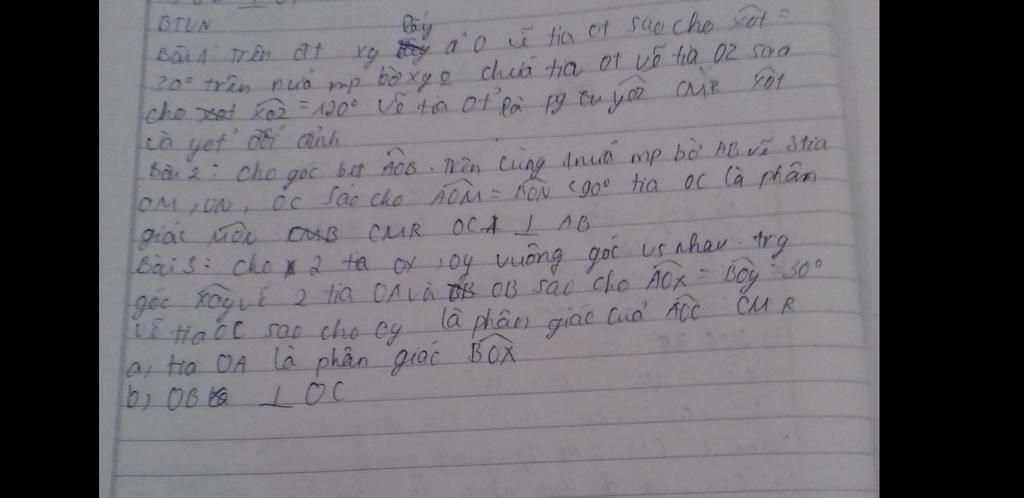 BTVN
Bài 1: Trên đt xy lấy đ' O vẽ tia Ot sao cho x̂Ot =
30° trên nửa mp bờ xy chứa tia Ot vẽ tia Oz sao
cho x̂Oz = 120° vẽ tia Ot' là pg của ŷOz CMR x̂Ot
và yOt' đối đỉnh
Bài 2: Cho góc bẹt ÂOB. Trên cùng 1 nửa mp bờ AB vẽ 3 tia
OM, ON, OC sao cho ÂOM = B̂ON < 90° tia OC là phân
giác M̂ON CMR OC ⊥ AB
Bài 3: Cho 2 tia Ox, Oy vuông góc vs nhau. trg
góc x̂Oy vẽ 2 tia OA và OB sao cho ÂOx = B̂Oy = 30°
vẽ tia OC sao cho Oy là phân giác của ÂOC CMR
a, tia OA là phân giác B̂OX
b, OB ⊥ OC